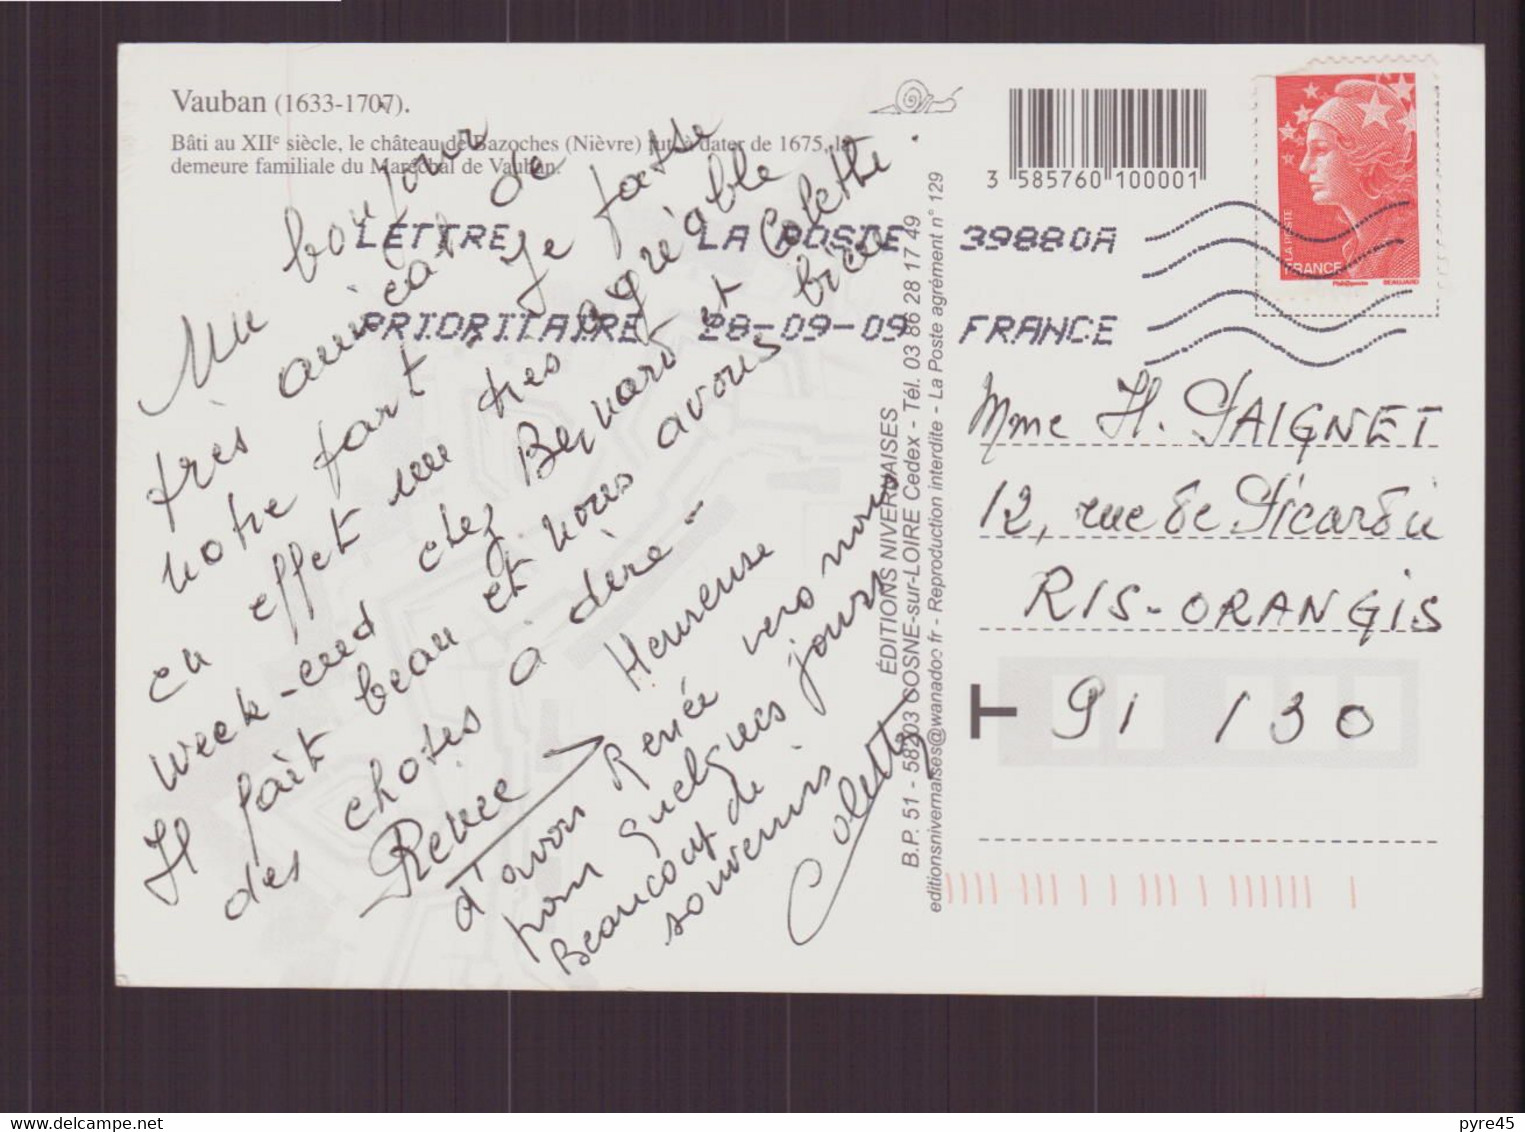 Vauban (1633-1707).
Bâti au XIIe siècle, le château de Bazoches (Nièvre) fut à dater de 1675, la
demeure familiale du Maréchal de Vauban.
3 585760 100001
LA POSTE
FRANCE
Phil@poste
BEAUJARD
LETTRE LA POSTE 39880A
PRIORITAIRE 28-09-09 FRANCE
Un bonjour
très amical de
notre part. Je passe
en effet un très agréable
week-end chez Bernard et Colette.
Il fait beau et nous avons bien
des choses à dire -
Renée
Heureuse
d'avoir Renée vers nous
pour quelques jours
Beaucoup de
souvenirs
Colette
ÉDITIONS NIVERNAISES
B.P. 51 - 58203 COSNE-sur-LOIRE Cedex - Tél. 03 86 28 17 49
editionsnivernaises@wanadoo.fr - Reproduction interdite - La Poste agrément n° 129
Mme H. PAIGNET
12, rue de Picardie
RIS-ORANGIS
T 91 130
pyre45